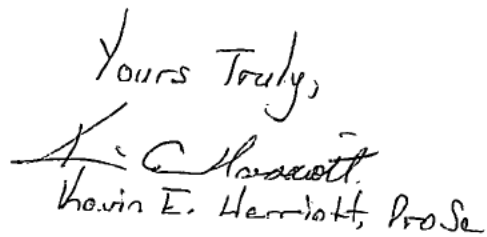 Yours Truly,
K. E. Harriott
Kevin E. Harriott, Pro Se